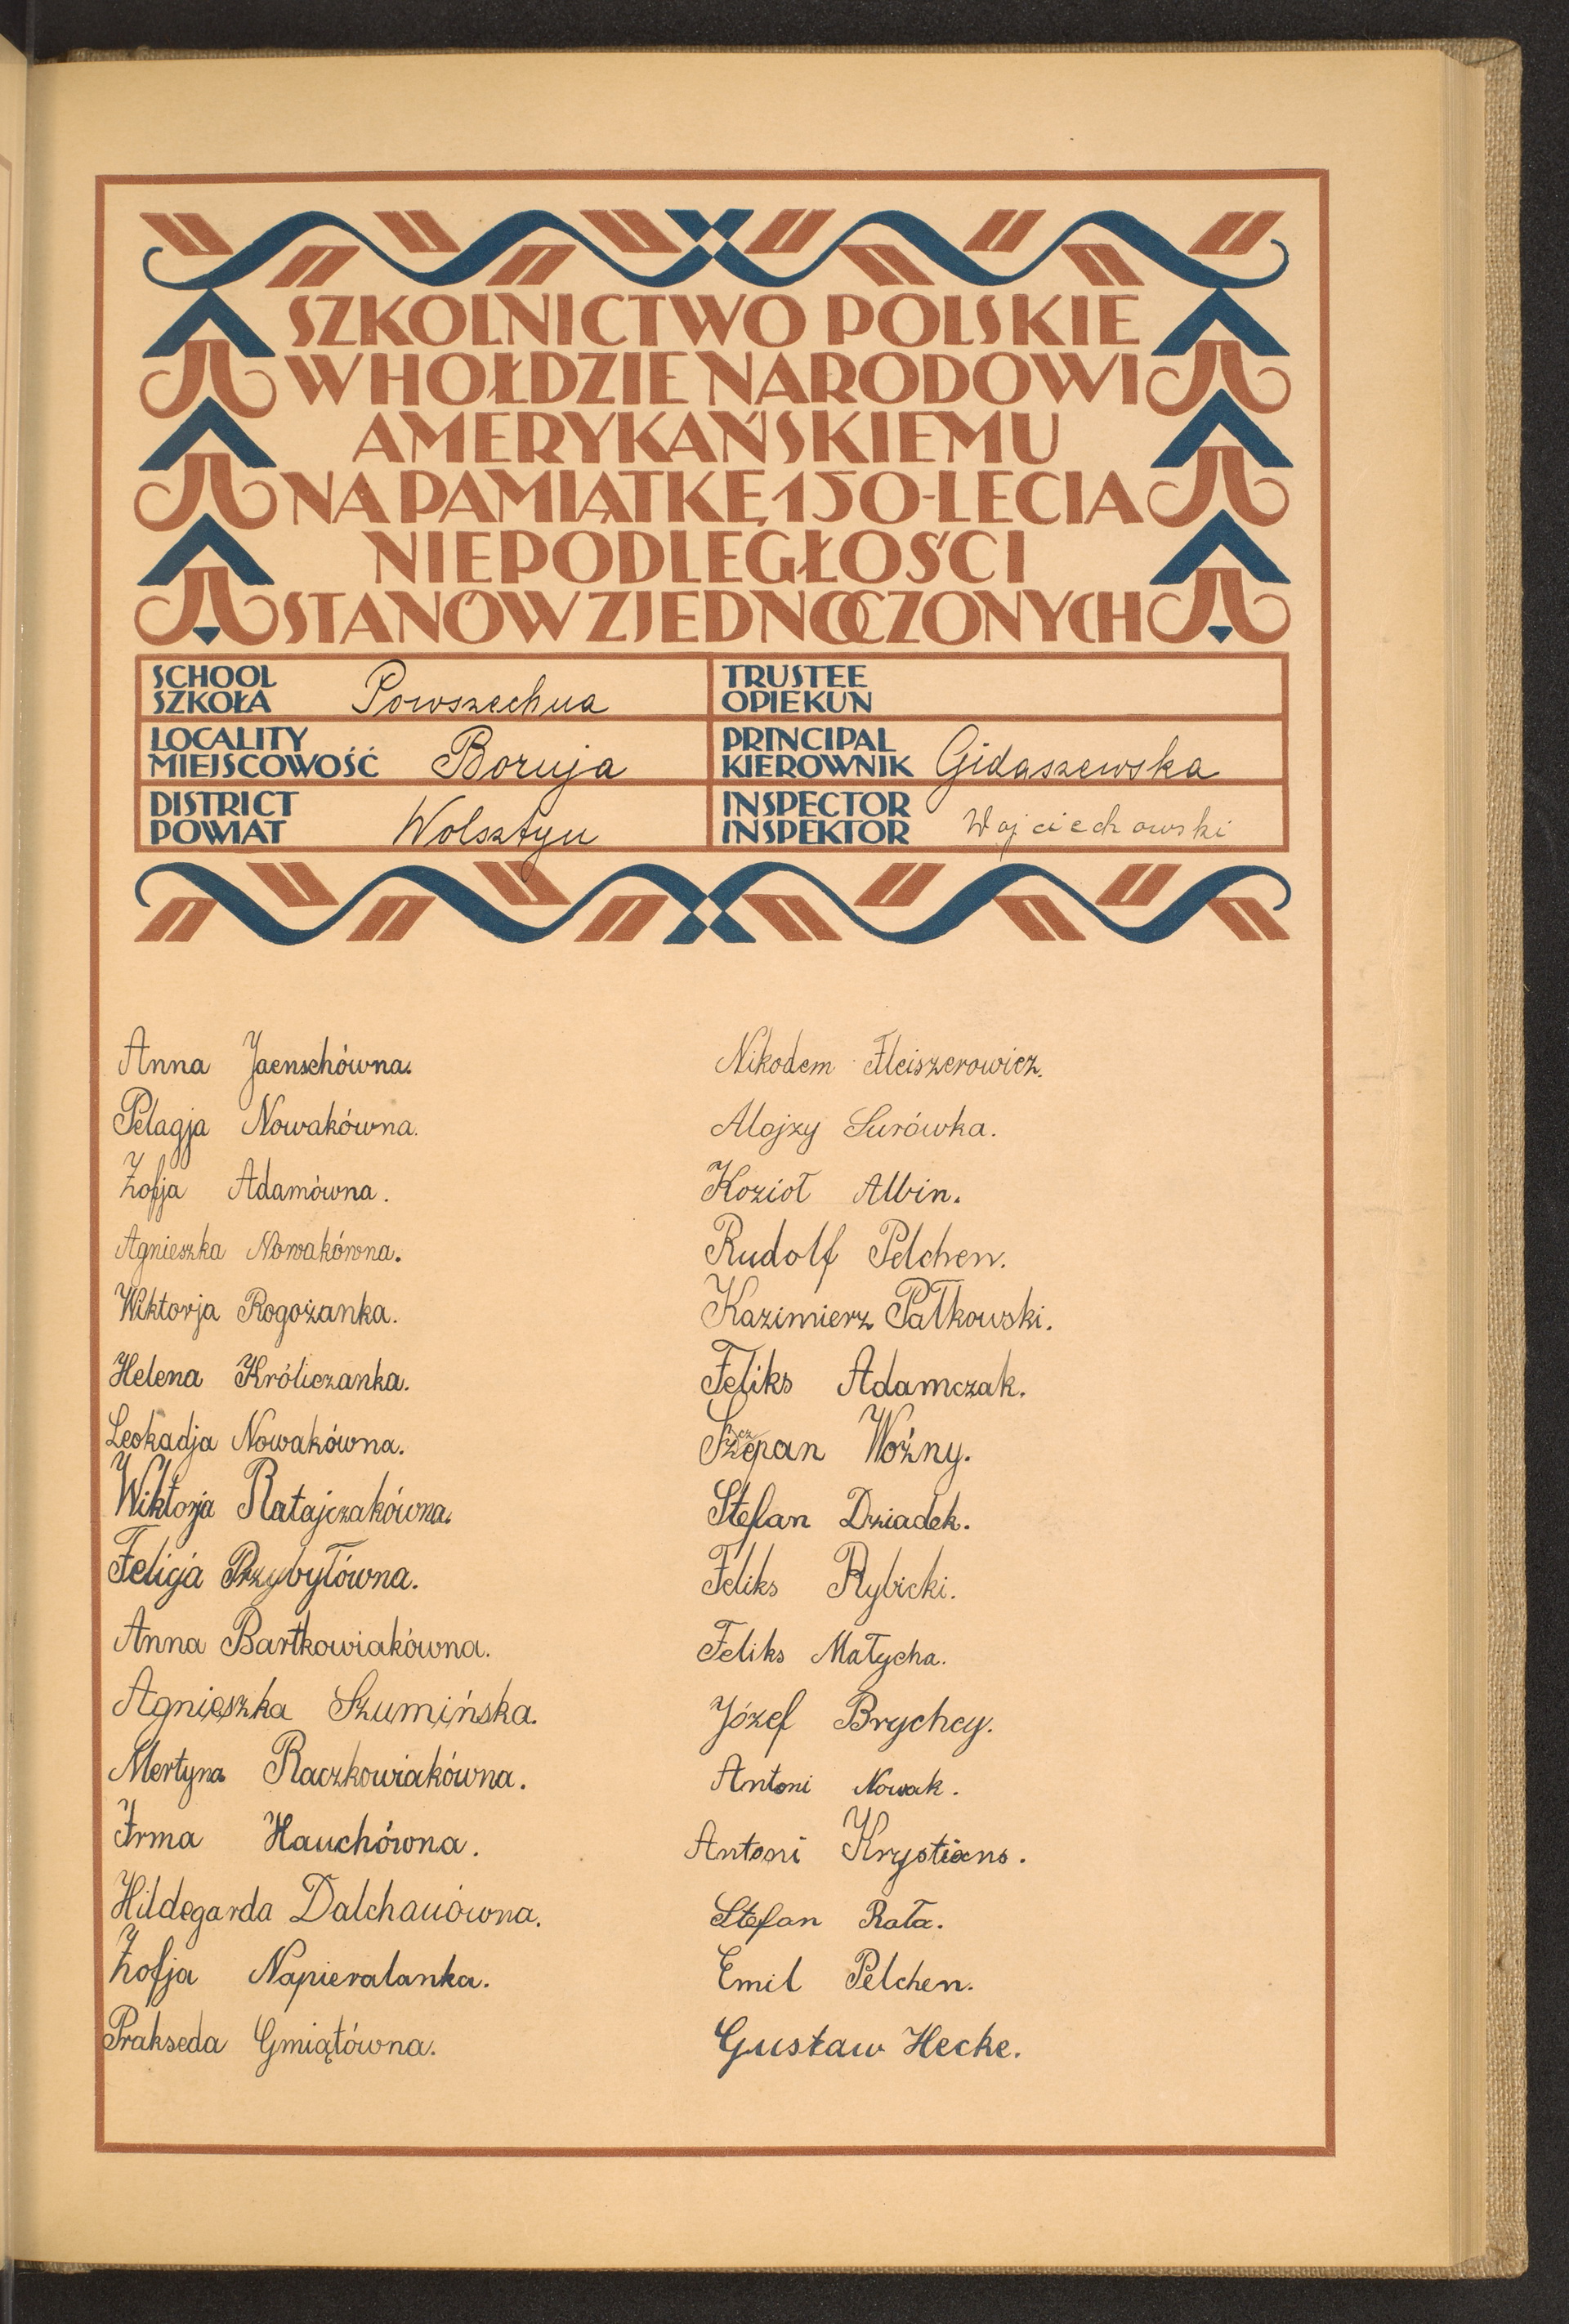 SZKOLNICTWO POLSKIE
W HOŁDZIE NARODOWI
AMERYKAŃSKIEMU
NA PAMIĄTKĘ 150-LECIA
NIEPODLEGŁOŚCI
STANÓW ZJEDNOCZONYCH
SCHOOL
SZKOŁA Powszechna
TRUSTEE
OPIEKUN
LOCALITY
MIEJSCOWOŚĆ Boruja
PRINCIPAL
KIEROWNIK Gidaszewska
DISTRICT
POWIAT Wolsztyn
INSPECTOR
INSPEKTOR Wojciechowski
Anna Jaenschówna.
Pelagja Nowakówna.
Zofja Adamówna.
Agnieszka Nowakówna.
Wiktorja Rogożanka.
Helena Króliczanka.
Leokadja Nowakówna.
Wiktorja Ratajczakówna.
Felicja Przybyłówna.
Anna Bartkowiakówna.
Agnieszka Szumińska.
Mertyna Raczkowiakówna.
Irma Hauchówna.
Hildegarda Dalchauówna.
Zofja Napieralanka.
Prakseda Gmiątówna.
Nikodem Fleiszerowicz.
Alojzy Surówka.
Kozioł Albin.
Rudolf Pelchen.
Kazimierz Pałkowski.
Feliks Adamczak.
Szczepan Woźny.
Stefan Dziadek.
Feliks Rybicki.
Feliks Małycha.
Józef Brychcy.
Antoni Nowak.
Antoni Krystians.
Stefan Rata.
Emil Pelchen.
Gustaw Hecke.